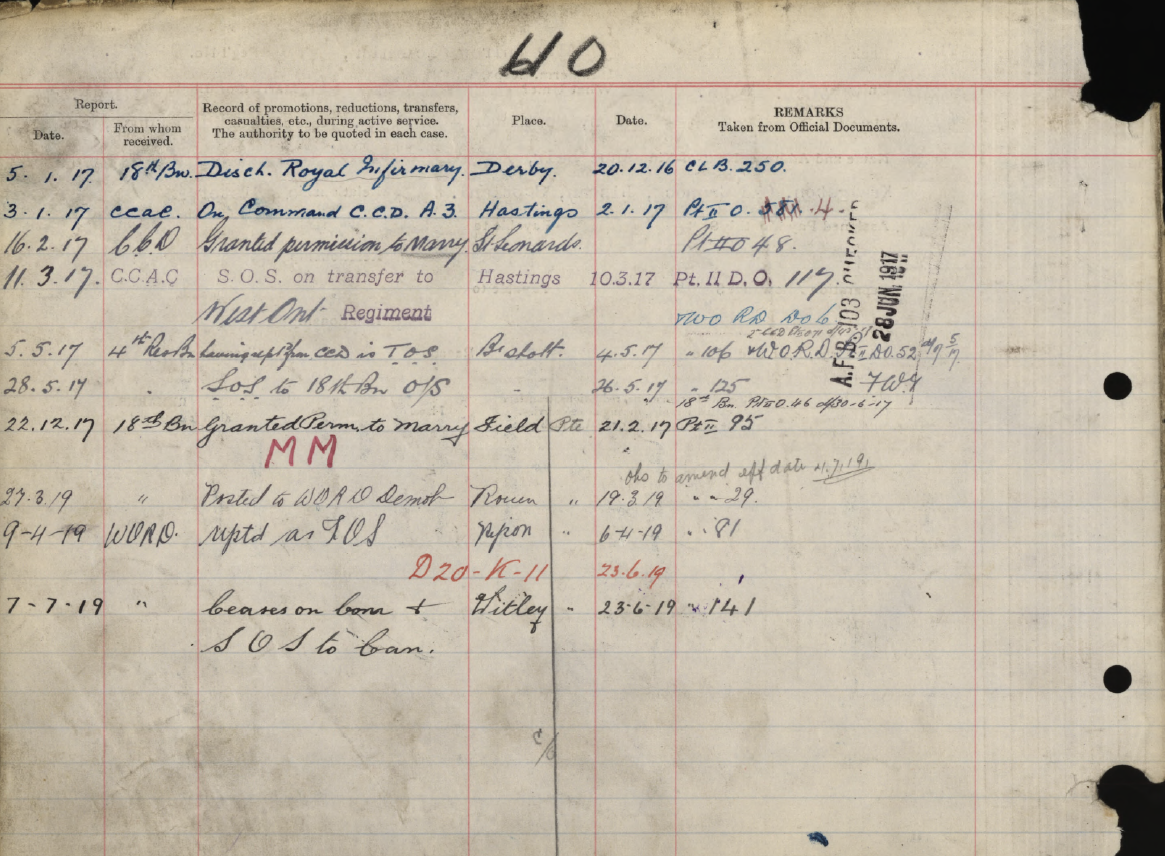 Report.
Date.
From whom received.
Record of promotions, reductions, transfers, casualties, etc., during active service. The authority to be quoted in each case.
Place.
Date.
REMARKS
Taken from Official Documents.
5. 1. 17. 18th Bn. Disch. Royal Infirmary. Derby. 20.12.16 CLB. 250.
3.1.17 CCAC. On Command C.C.D. A.3. Hastings 2.1.17 Pt II O. 4.
16.2.17 CCD Granted permission to Marry St Leonards. Pt II O 48.
11.3.17. C.C.A.C S.O.S. on transfer to Hastings 10.3.17 Pt. II D.O. 117.
West Ont Regiment WORD DO 6
5.5.17 4th Res Bn having rept from CCD is T.O.S. Bshott. 4.5.17 " 106 WORD. II DO.52
28.5.17 " SOS to 18th Bn O/S - 26.5.17 " 125
18th Bn. Pt II O.46 d/30-6-17
22.12.17 18th Bn Granted Perm. to Marry Field Pte 21.2.17 Pt II 95
MM
obs to amend eff date
27.3.19 " Posted to WORD Demob Rouen " 19.3.19 " " 29.
9-4-19 WORD. rptd as TOS Ripon " 6-4-19 " 81
D20-K-11 23.6.19
7-7-19 " Ceases on Com + Witley " 23-6-19 " 141
S O S to Can.
A.F.B. 103 CHECKED
28 JUN 1917
c/b